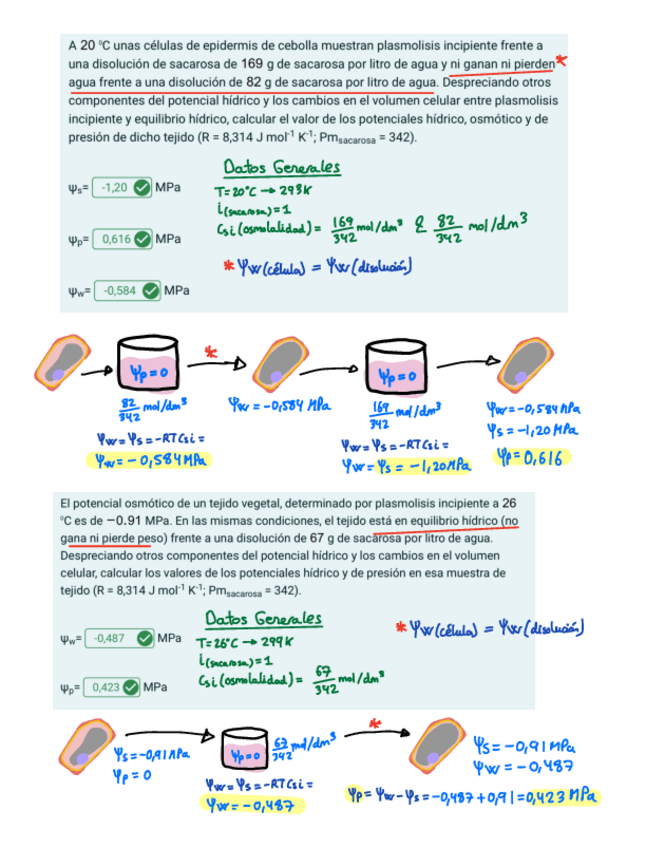 A 20 ºC unas células de epidermis de cebolla muestran plasmolisis incipiente frente a
una disolución de sacarosa de 169 g de sacarosa por litro de agua y ni ganan ni pierden *
agua frente a una disolución de 82 g de sacarosa por litro de agua. Despreciando otros
componentes del potencial hídrico y los cambios en el volumen celular entre plasmolisis
incipiente y equilibrio hídrico, calcular el valor de los potenciales hídrico, osmótico y de
presión de dicho tejido (R = 8,314 J mol⁻¹ K⁻¹; Pmsacarosa = 342).
Datos Generales
Ψs= -1,20 MPa
T=20°C → 293K
i(sacarosa)=1
Csi (osmolalidad) = 169/342 mol/dm³ & 82/342 mol/dm³
Ψp= 0,616 MPa
* Ψw (célula) = Ψw (disolución)
Ψw= -0,584 MPa
*
Ψp=0
Ψp=0
82/342 mol/dm³
Ψw = -0,584 MPa
169/342 mol/dm³
Ψw = -0,584 MPa
Ψs = -1,20 MPa
Ψw = Ψs = -RTCsi =
Ψw = Ψs = -RTCsi =
Ψp = 0,616
Ψw = -0,584 MPa
Ψw = Ψs = -1,20 MPa
El potencial osmótico de un tejido vegetal, determinado por plasmolisis incipiente a 26
ºC es de −0.91 MPa. En las mismas condiciones, el tejido está en equilibrio hídrico (no
gana ni pierde peso) frente a una disolución de 67 g de sacarosa por litro de agua.
Despreciando otros componentes del potencial hídrico y los cambios en el volumen
celular, calcular los valores de los potenciales hídrico y de presión en esa muestra de
tejido (R = 8,314 J mol⁻¹ K⁻¹; Pmsacarosa = 342).
Datos Generales
* Ψw (célula) = Ψw (disolución)
Ψw= -0,487 MPa
T=26°C → 299K
i(sacarosa)=1
Csi (osmolalidad) = 67/342 mol/dm³
Ψp= 0,423 MPa
*
Ψs = -0,91 MPa
Ψp = 0
Ψp=0
67/342 mol/dm³
Ψs = -0,91 MPa
Ψw = -0,487
Ψw = Ψs = -RTCsi =
Ψw = -0,487
Ψp = Ψw - Ψs = -0,487 + 0,91 = 0,423 MPa